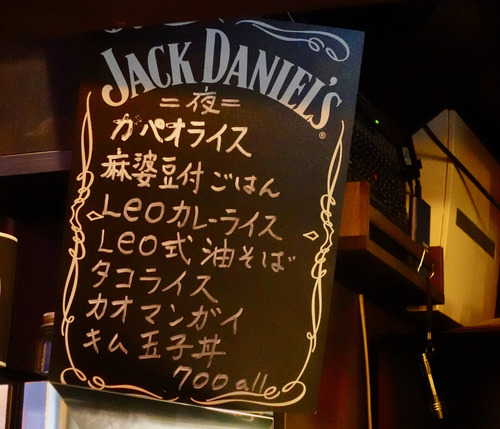 JACK DANIEL'S
=夜=
ガパオライス
麻婆豆付ごはん
Leoカレーライス
Leo式 油そば
タコライス
カオマンガイ
キム玉子丼
700 all